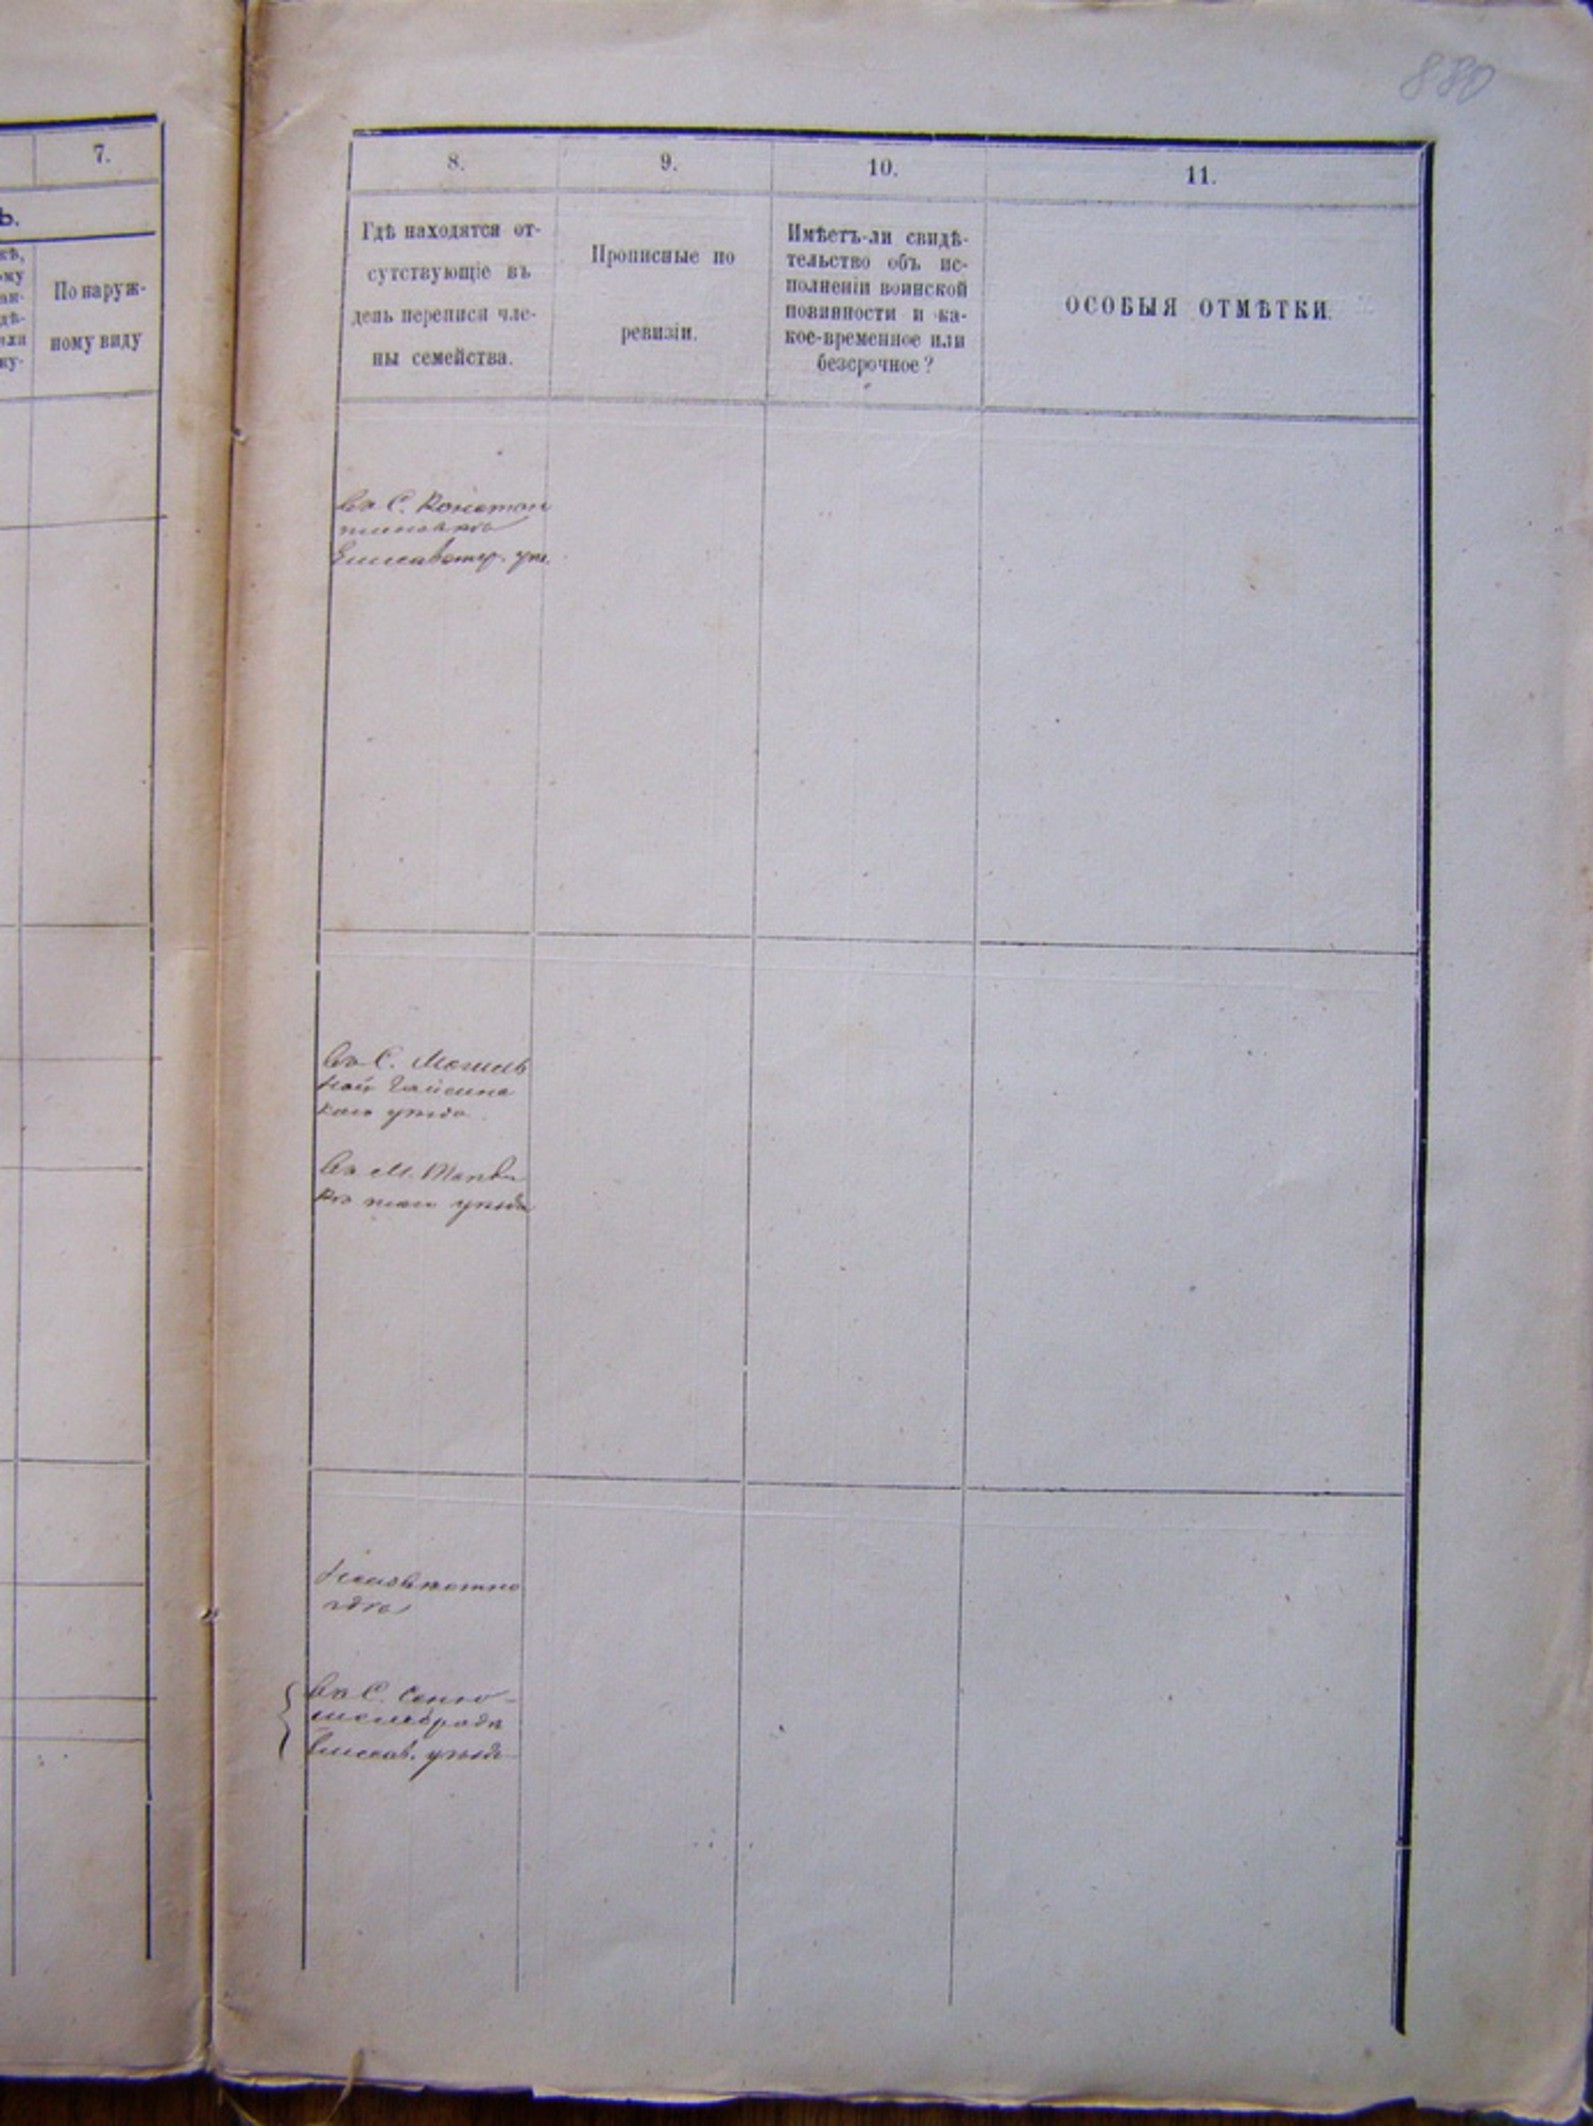 880
7.
ъ.
По наруж-
ному виду
8.
Гдѣ находятся от-
сутствующіе въ
день переписи чле-
ны семейства.
9.
Прописные по
ревизіи.
10.
Имѣетъ-ли свидѣ-
тельство объ ис-
полненіи воинской
повинности и ка-
кое-временное или
безсрочное?
11.
ОСОБЫЯ ОТМѢТКИ.
въ С. Констан
тиновкѣ
Елисаветгр. уѣз.
въ С. Могиль
ной Гайсинс
каго уѣзда
въ М.
уѣзда
Неизвѣстно
гдѣ
въ С.
Елисав. уѣзда